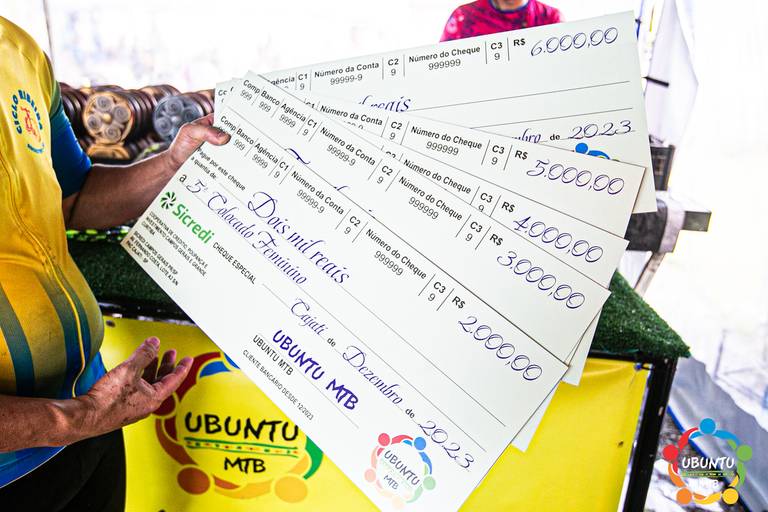 Agência C1 Número da Conta C2 Número do Cheque C3 R$ 6.000,00
9 99999-9 9 999999 9
reais
de 2023
Comp Banco Agência C1 Número da Conta C2 Número do Cheque C3 R$ 5.000,00
999 999 9999 9 99999-9 9 999999 9
C3 R$ 4.000,00
9
Comp Banco Agência C1 Número da Conta C2 Número do Cheque C3 R$ 3.000,00
999 999 9999 9 99999-9 9 999999 9
Comp Banco Agência C1 Número da Conta C2 Número do Cheque C3 R$ 2.000,00
999 999 9999 9 99999-9 9 999999 9
Pague por este cheque
a quantia de Dois mil reais
a 5° Colocado Feminino
Sicredi
CHEQUE ESPECIAL
COOPERATIVA DE CRÉDITO, POUPANÇA E
INVESTIMENTO CAMPOS GERAIS E GRANDE
CURITIBA
Cajati de Dezembro de 2023
UBUNTU MTB
UBUNTU MTB
CLIENTE BANCÁRIO DESDE 12/2023
UBUNTU
MTB
UBUNTU
MTB
UBUNTU
MTB